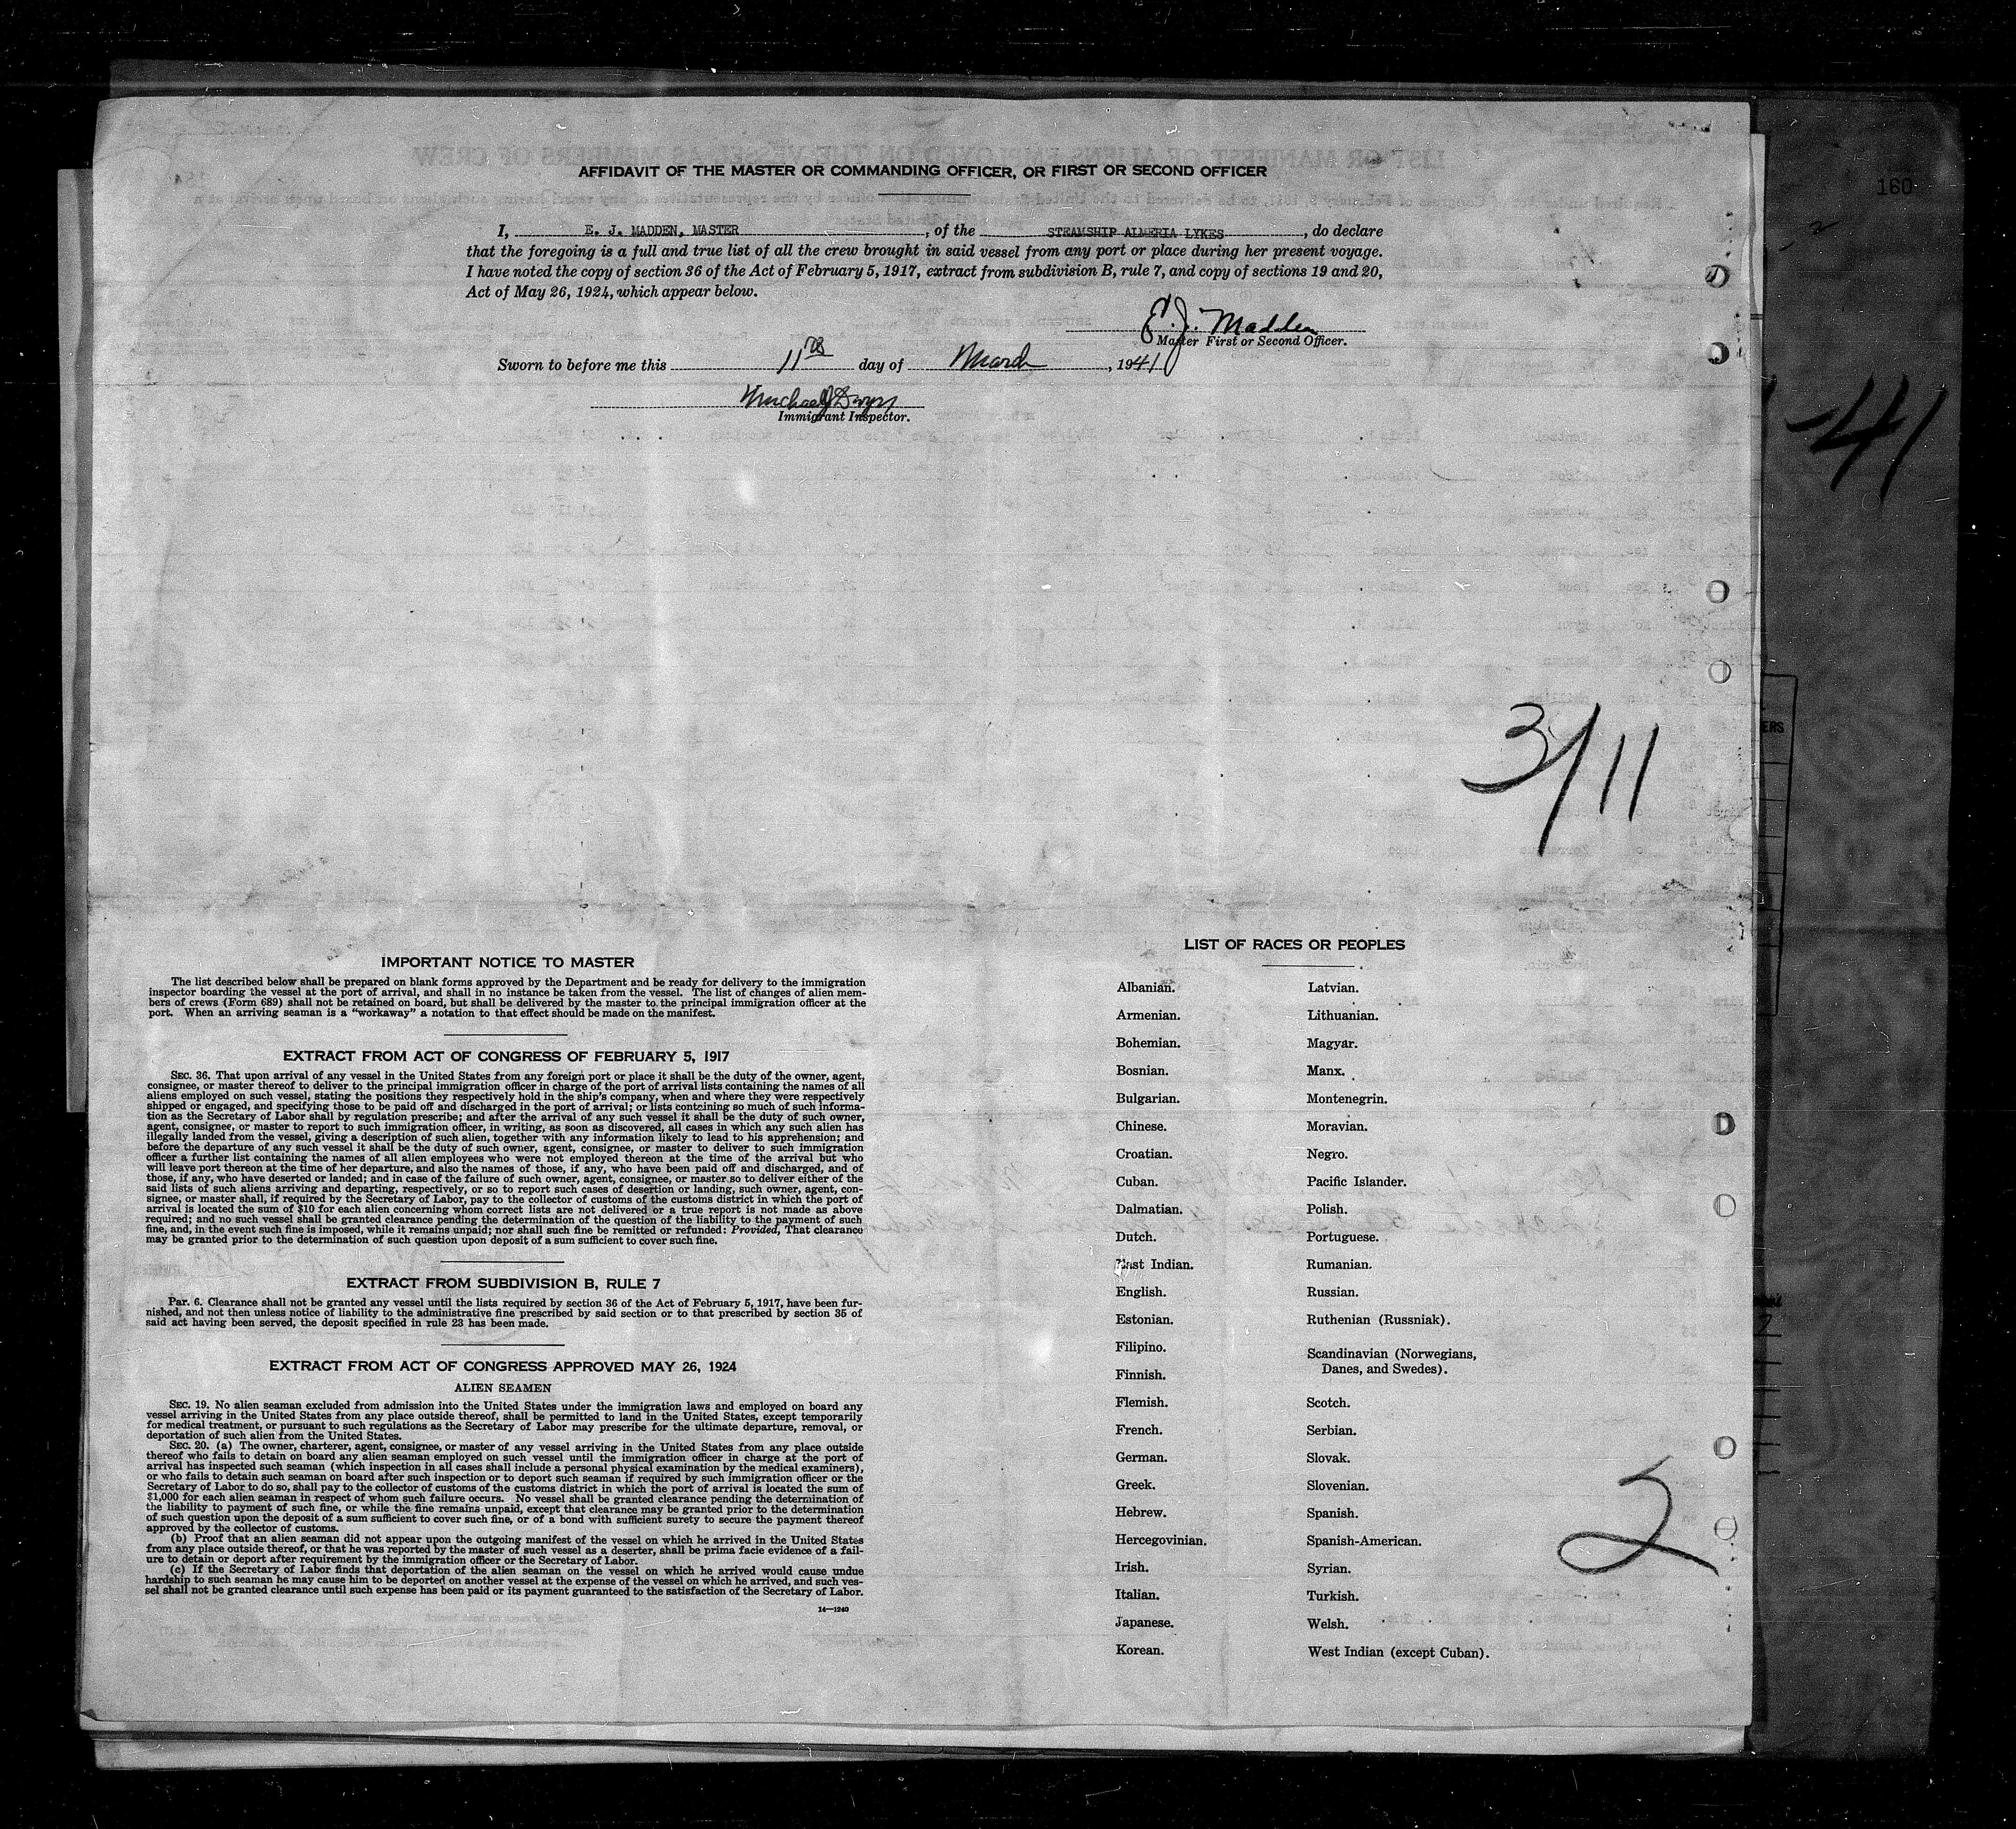 160
AFFIDAVIT OF THE MASTER OR COMMANDING OFFICER, OR FIRST OR SECOND OFFICER
I, E. J. MADDEN, MASTER, of the STEAMSHIP ALMERIA LYKES, do declare
that the foregoing is a full and true list of all the crew brought in said vessel from any port or place during her present voyage.
I have noted the copy of section 36 of the Act of February 5, 1917, extract from subdivision B, rule 7, and copy of sections 19 and 20,
Act of May 26, 1924, which appear below.
E. J. Madden
Master First or Second Officer.
Sworn to before me this 11th day of March, 1941
Michael J Dwyer
Immigrant Inspector.
-41
3/11
ERS
IMPORTANT NOTICE TO MASTER
The list described below shall be prepared on blank forms approved by the Department and be ready for delivery to the immigration
inspector boarding the vessel at the port of arrival, and shall in no instance be taken from the vessel. The list of changes of alien mem-
bers of crews (Form 689) shall not be retained on board, but shall be delivered by the master to the principal immigration officer at the
port. When an arriving seaman is a "workaway" a notation to that effect should be made on the manifest.
EXTRACT FROM ACT OF CONGRESS OF FEBRUARY 5, 1917
SEC. 36. That upon arrival of any vessel in the United States from any foreign port or place it shall be the duty of the owner, agent,
consignee, or master thereof to deliver to the principal immigration officer in charge of the port of arrival lists containing the names of all
aliens employed on such vessel, stating the positions they respectively hold in the ship's company, when and where they were respectively
shipped or engaged, and specifying those to be paid off and discharged in the port of arrival; or lists containing so much of such informa-
tion as the Secretary of Labor shall by regulation prescribe; and after the arrival of any such vessel it shall be the duty of such owner,
agent, consignee, or master to report to such immigration officer, in writing, as soon as discovered, all cases in which any such alien has
illegally landed from the vessel, giving a description of such alien, together with any information likely to lead to his apprehension; and
before the departure of any such vessel it shall be the duty of such owner, agent, consignee, or master to deliver to such immigration
officer a further list containing the names of all alien employees who were not employed thereon at the time of the arrival but who
will leave port thereon at the time of her departure, and also the names of those, if any, who have been paid off and discharged, and of
those, if any, who have deserted or landed; and in case of the failure of such owner, agent, consignee, or master so to deliver either of the
said lists of such aliens arriving and departing, respectively, or so to report such cases of desertion or landing, such owner, agent, con-
signee, or master shall, if required by the Secretary of Labor, pay to the collector of customs of the customs district in which the port of
arrival is located the sum of $10 for each alien concerning whom correct lists are not delivered or a true report is not made as above
required; and no such vessel shall be granted clearance pending the determination of the question of the liability to the payment of such
fine, and, in the event such fine is imposed, while it remains unpaid; nor shall such fine be remitted or refunded: Provided, That clearance
may be granted prior to the determination of such question upon deposit of a sum sufficient to cover such fine.
EXTRACT FROM SUBDIVISION B, RULE 7
Par. 6. Clearance shall not be granted any vessel until the lists required by section 36 of the Act of February 5, 1917, have been fur-
nished, and not then unless notice of liability to the administrative fine prescribed by said section or to that prescribed by section 35 of
said act having been served, the deposit specified in rule 23 has been made.
EXTRACT FROM ACT OF CONGRESS APPROVED MAY 26, 1924
ALIEN SEAMEN
SEC. 19. No alien seaman excluded from admission into the United States under the immigration laws and employed on board any
vessel arriving in the United States from any place outside thereof, shall be permitted to land in the United States, except temporarily
for medical treatment, or pursuant to such regulations as the Secretary of Labor may prescribe for the ultimate departure, removal, or
deportation of such alien from the United States.
SEC. 20. (a) The owner, charterer, agent, consignee, or master of any vessel arriving in the United States from any place outside
thereof who fails to detain on board any alien seaman employed on such vessel until the immigration officer in charge at the port of
arrival has inspected such seaman (which inspection in all cases shall include a personal physical examination by the medical examiners),
or who fails to detain such seaman on board after such inspection or to deport such seaman if required by such immigration officer or the
Secretary of Labor to do so, shall pay to the collector of customs of the customs district in which the port of arrival is located the sum of
$1,000 for each alien seaman in respect of whom such failure occurs. No vessel shall be granted clearance pending the determination of
the liability to payment of such fine, or while the fine remains unpaid, except that clearance may be granted prior to the determination
of such question upon the deposit of a sum sufficient to cover such fine, or of a bond with sufficient surety to secure the payment thereof
approved by the collector of customs.
(b) Proof that an alien seaman did not appear upon the outgoing manifest of the vessel on which he arrived in the United States
from any place outside thereof, or that he was reported by the master of such vessel as a deserter, shall be prima facie evidence of a fail-
ure to detain or deport after requirement by the immigration officer or the Secretary of Labor.
(c) If the Secretary of Labor finds that deportation of the alien seaman on the vessel on which he arrived would cause undue
hardship to such seaman he may cause him to be deported on another vessel at the expense of the vessel on which he arrived, and such ves-
sel shall not be granted clearance until such expense has been paid or its payment guaranteed to the satisfaction of the Secretary of Labor.
14—1240
LIST OF RACES OR PEOPLES
Albanian.
Armenian.
Bohemian.
Bosnian.
Bulgarian.
Chinese.
Croatian.
Cuban.
Dalmatian.
Dutch.
East Indian.
English.
Estonian.
Filipino.
Finnish.
Flemish.
French.
German.
Greek.
Hebrew.
Hercegovinian.
Irish.
Italian.
Japanese.
Korean.
Latvian.
Lithuanian.
Magyar.
Manx.
Montenegrin.
Moravian.
Negro.
Pacific Islander.
Polish.
Portuguese.
Rumanian.
Russian.
Ruthenian (Russniak).
Scandinavian (Norwegians,
Danes, and Swedes).
Scotch.
Serbian.
Slovak.
Slovenian.
Spanish.
Spanish-American.
Syrian.
Turkish.
Welsh.
West Indian (except Cuban).
2